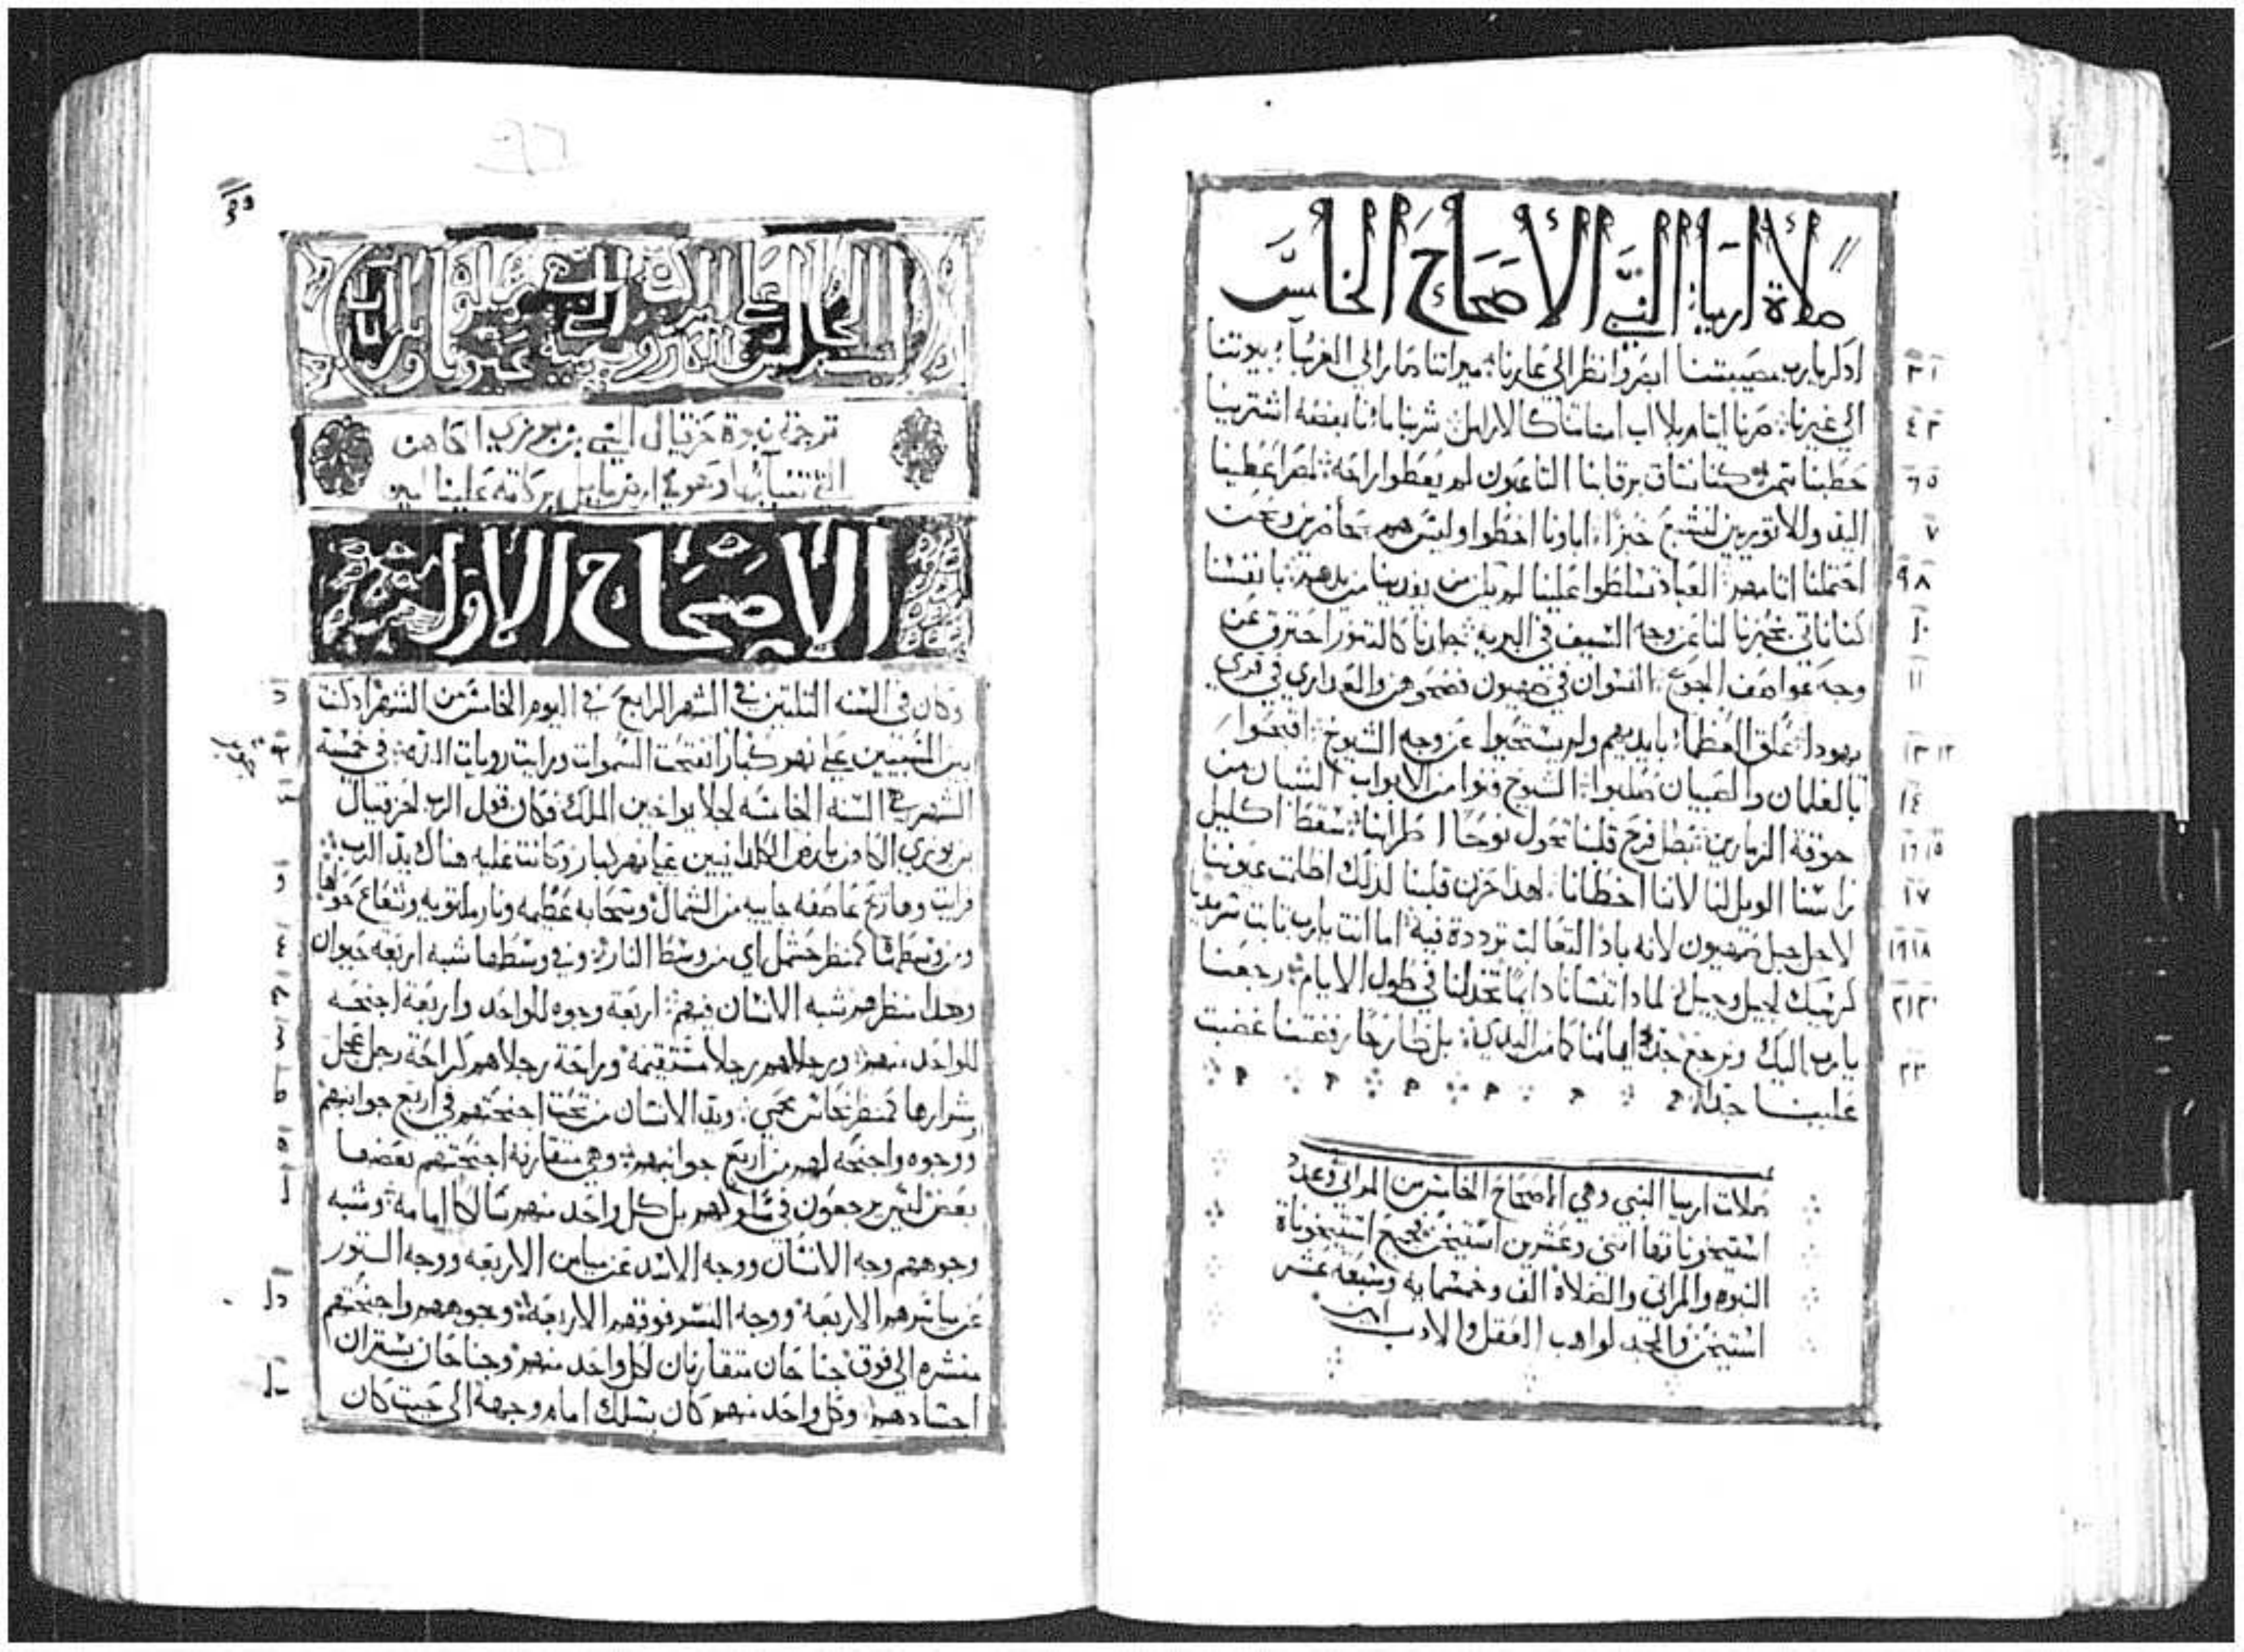 صلاة ارميا النبي الأصحاح الخامس
اذكر يا رب مصيبتنا ابصر وانظر الى عارنا ميراتنا صار الى الغربا بيوتنا
الى غيرنا صرنا ايتام بلا اب امهاتنا كالارامل شربنا ماءنا بفضه اشترينا
حطبنا بتمن كنا نساق برقابنا التاعبون لم يعطوا راحه لمصر اعطينا
اليد وللاتوريين لنشبع خبزا اباونا اخطوا وليس هم حاضرين ونحن
احتملنا اتامهم العباد تسلطوا علينا لم يكن من يفدينا من يدهم بانفسنا
كنا ناتي بخبزنا لنا عن وجه السيف في البريه جلدنا كالتنور احترق عن
وجه عواصف الجوع النسوان في صهيون فضحوهن والعداري في قري
يهودا علق العظما بايديهم ولم يستحيوا عن وجه الشيوخ افتحوا
بالغلمان والصبيان صلبوا الشيوخ فنوا من الابواب الشبان من
جوقة الزمارين بطل فرح قلبنا تحول نوحا طرابنا سقط اكليل
راسنا الويل لنا لاننا اخطانا لهدا حزن قلبنا لدلك اظلمت عيوننا
لاجل جبل صهيون لانه باد التعالب ترددة فيه اما انت يا رب تابت سرمديا
كرسيك لجيل وجيل لمادا تنسانا دايما تخذلنا في طول الايام رجعنا
يا رب اليك ونرجع جدد ايامنا كما من البدي بل طارحا رفضتنا غضبت
علينا جدا
صلات ارميا النبي وهي الاصحاح الخامس من المراتي وعدد
استيخوناتها اتني وعشرين استيخن جميع استيخوناة
النبوه والمراتي والصلاة الف وخمسمايه وسبعه عشر
استيخن والمجد لواهب العقل والادب امين
ترجمة نبوة حزقيال النبي بن بوزي الكاهن
التي تنبا بها وهو في ارض بابل بركاته علينا امين
الإصحاح الاول
وكان في السنه التلتين في الشهر الرابع في اليوم الخامس من الشهر اد كنت
بين المسبيين على نهر كبار انفتحت السموات ورايت رويات الاله في خمسة
الشهر في السنه الخامسه لجلا يواخين الملك فكان قول الرب لحزقيال
بن بوزي الكاهن بارض الكلدانيين على نهر كبار وكانت عليه هناك يد الرب
فرايت وها ريح عاصفه جاييه من الشمال وسحابه عظيمه ونار ملتويه وشعاع حولها
ومن وسطها كمنظر حشمل اي من وسط النار وفي وسطها شبه اربعه حيوان
وهدا منظرهم شبه الانسان فيهم اربعة وجوه للواحد واربعة اجنحه
للواحد منهم ورجلاهم رجلا مستقيمة وراحة رجلاهم كراحة رجل عجل
وشرارها كمنظر نحاس محمي ويد الانسان من تحت اجنحتهم في اربع جوانبهم
ووجوه واجنحه لهم من اربع جوانبهم وهي متقارنة اجنحتهم بعضها
بعض ليس يرجعون في سلوكهم بل كل واحد منهم سالكا امامه وشبه
وجوههم وجه الانسان ووجه الاسد عن ميامن الاربعه ووجه التور
عن مياسرهم الاربعة ووجه النسر فوقهم الاربعة وجوههم واجنحتهم
منشره الى فوق جناحان متقارنان لكل واحد منهم وجناحان يستران
اجسادهم وكل واحد منهم كان يسلك امام وجهه الى حيت كان